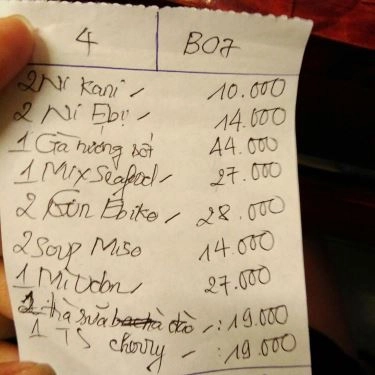 4 B07
2 Ni Kani 10.000
2 Ni Ebi 14.000
1 Gà nướng sốt 44.000
1 Mix Seafood 27.000
2 Ebiko 28.000
2 Soup Miso 14.000
1 Mì Udon 27.000
sữa đào : 19.000
1 TS cherry : 19.000